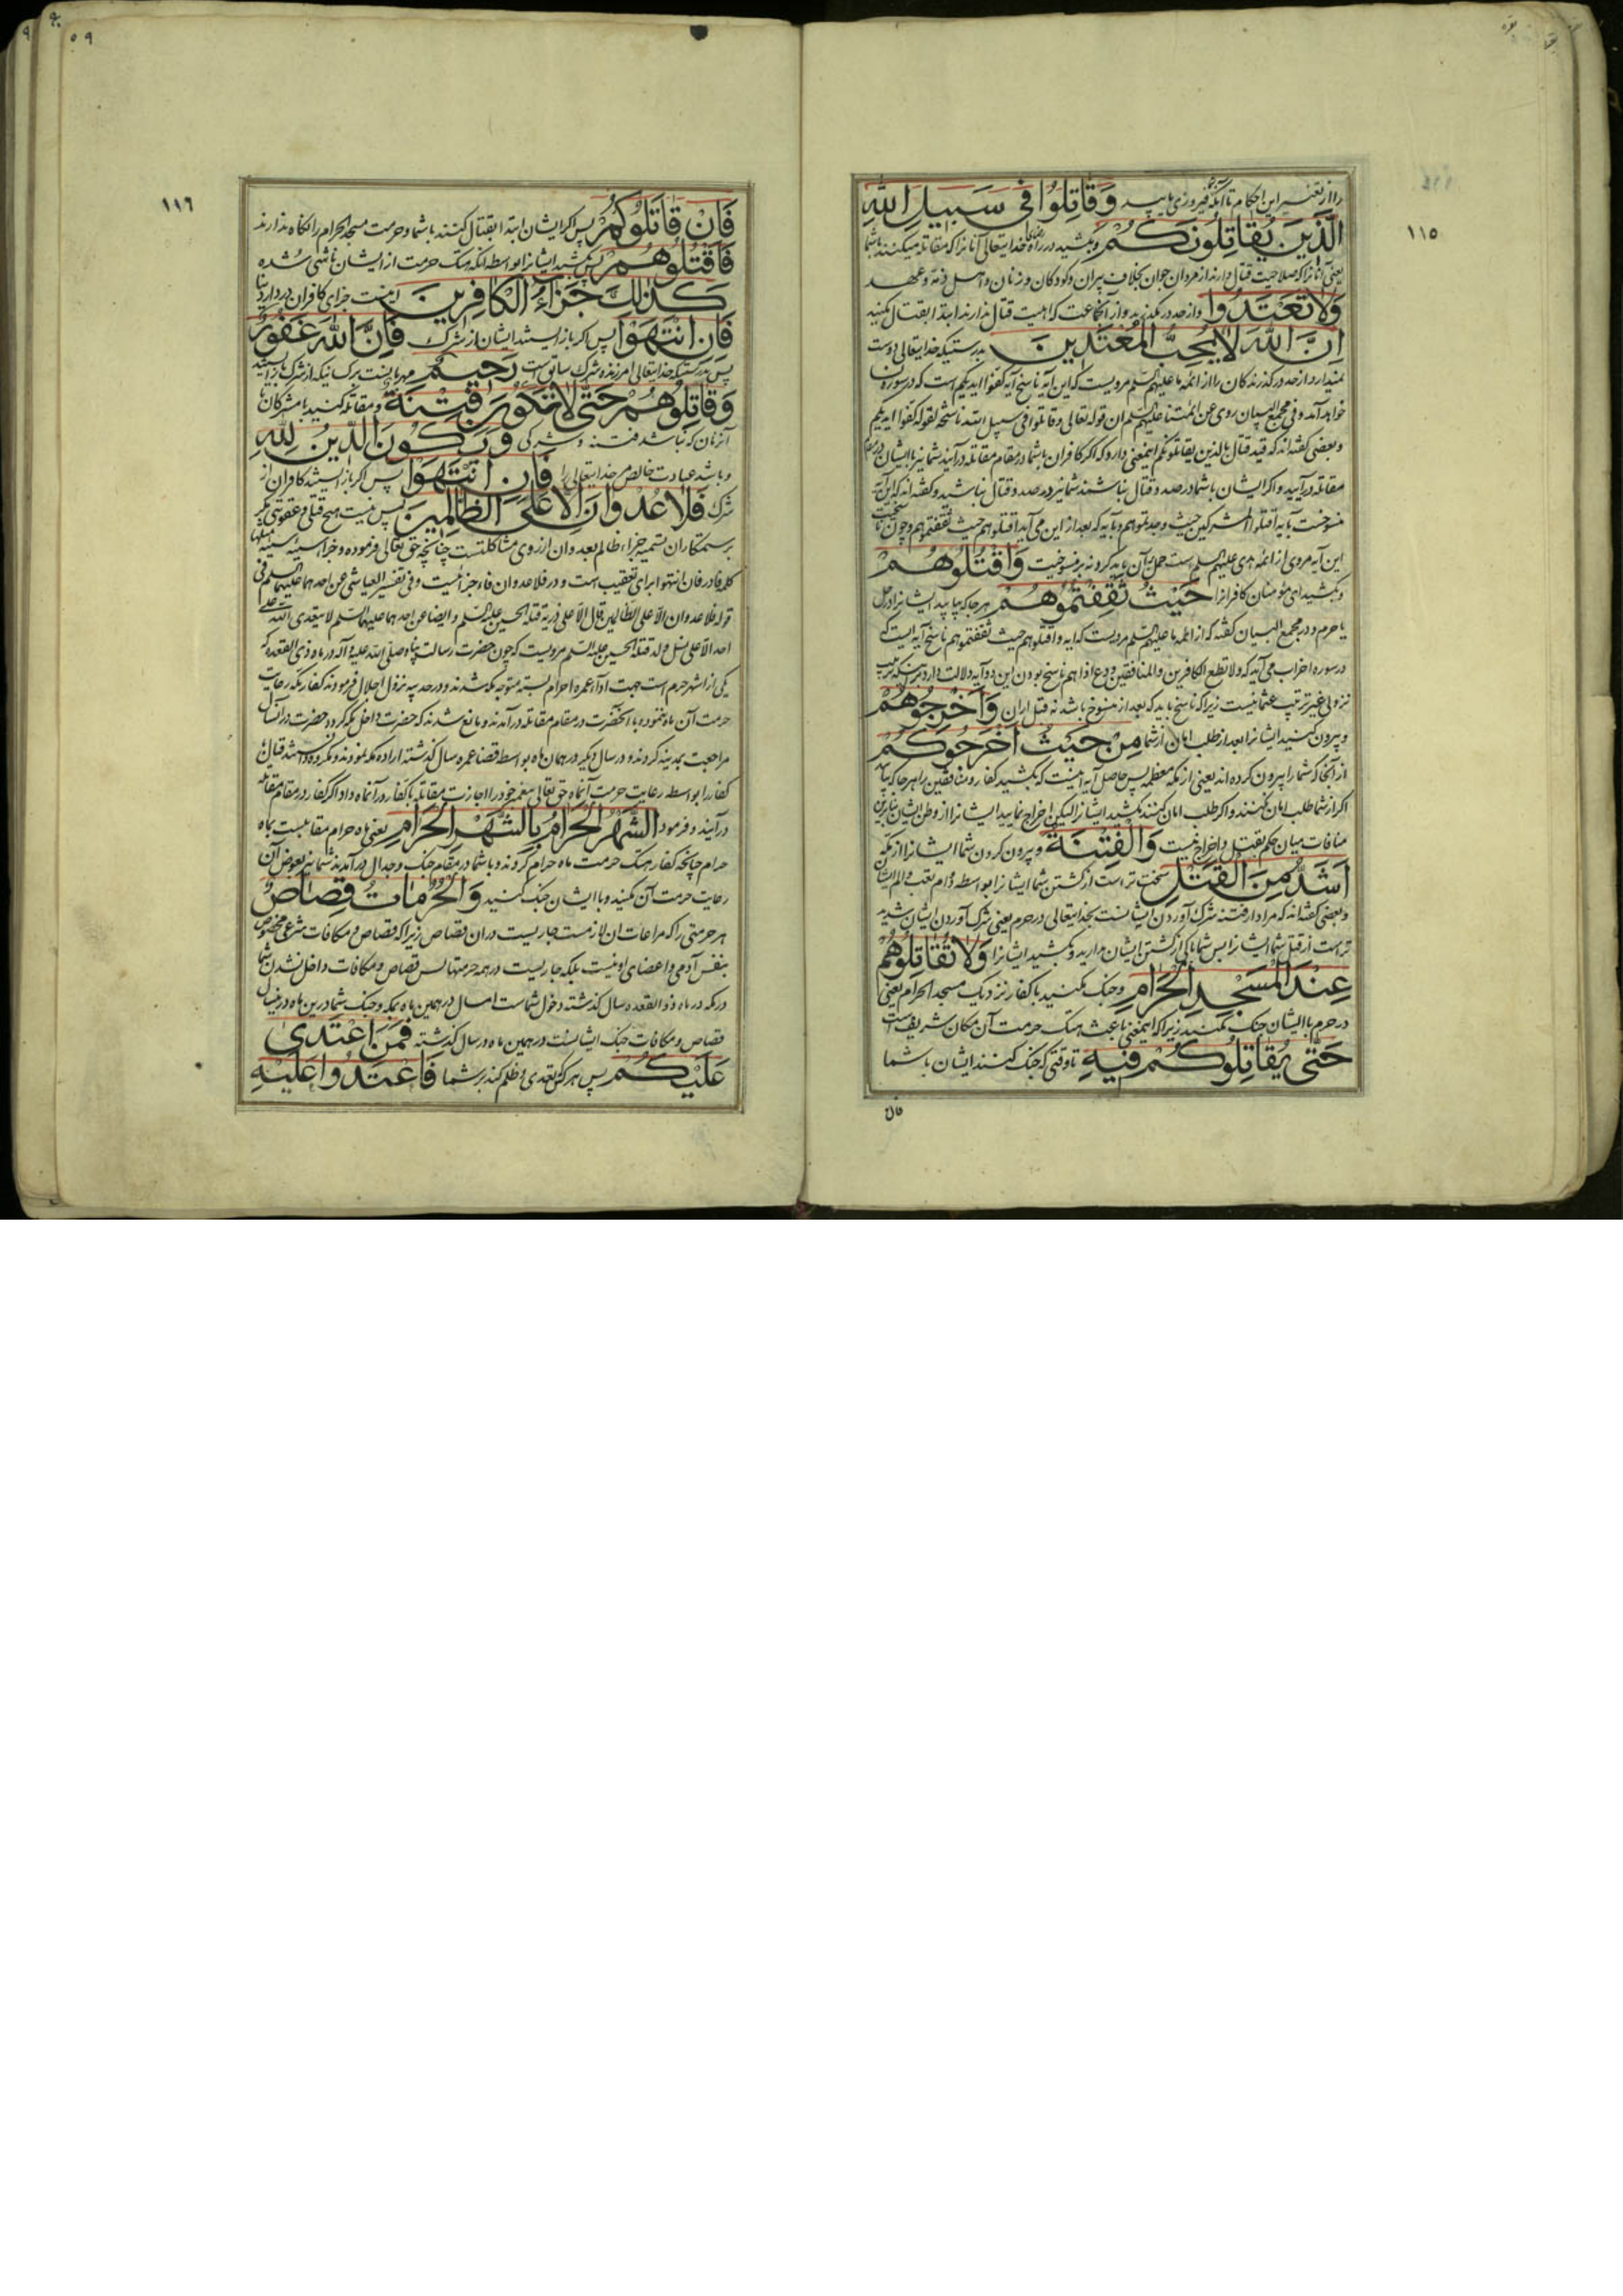 ١١٥
را از تغییر این احکام تا آنکه فیروزی یابید وَقَاتِلُوا فِی سَبِیلِ اللّٰهِ
الَّذِینَ یُقَاتِلُونَکُمْ و بکشید در راه خدایتعالی آنانرا که مقاتله میکنند با شما
یعنی آنانرا که صلاحیت قتال دارند از مردان جوان بخلاف پیران و کودکان و زنان و اهل ذمه و عهد
وَلَا تَعْتَدُوا و از حد در مگذرید و از آنجماعت که اهلیت قتال ندارند ابتدا بقتال مکنید
اِنَّ اللّٰهَ لَا یُحِبُّ الْمُعْتَدِینَ بدرستیکه خدایتعالی دوست
نمیدارد از حد در گذرندگان را از ائمه ما علیهم السلم مرویست که این آیه ناسخ آیه کفوا ایدیکم است که در سوره
خواهد آمد و فی مجمع البیان روی عن ائمتنا علیهم السلم ان قوله تعالی وقاتلوا فی سبیل الله ناسخة لقوله کفوا ایدیکم
و بعضی گفته‌اند که قید قتال بالذین یقاتلونکم اینمعنی دارد که اگر کافران با شما در مقام مقاتله در آیند شما نیز با ایشان در مقام
مقاتله در آیید و اگر ایشان با شما در صدد قتال نباشند شما نیز در صدد قتال نباشید و گفته‌اند که این آیه
منسوخست بآیه اقتلوا المشرکین حیث وجدتموهم و بآیه که بعد از این می‌آید اقتلوهم حیث ثقفتموهم و چون
این آیه مروی از ائمه هدی علیهم السلم است حمل آن باید کرد نه بر منسوخیت وَاقْتُلُوهُمْ
و بکشید ای مؤمنان کافرانرا حَیْثُ ثَقِفْتُمُوهُمْ هر جا که بیابید ایشانرا در حل
یا حرم و در مجمع البیان گفته که از ائمه ما علیهم السلم مرویست که آیه واقتلوهم حیث ثقفتموهم ناسخ آیه ایست که
در سوره احزاب می‌آید که ولا تطع الکافرین والمنافقین ودع اذاهم ناسخ بودن این دو آیه دلالت دارد بر اینکه ترتیب
نزولی غیر ترتیب عثمانیست زیرا که ناسخ باید که بعد از منسوخ باشد نه قبل از ان وَاَخْرِجُوهُمْ
و بیرون کنید ایشانرا بعد از طلب امان از شما مِنْ حَیْثُ اَخْرَجُوکُمْ
از آنجا که شما را بیرون کرده‌اند یعنی از مکه معظمه پس حاصل آیه اینست که بکشید کفار و منافقین را هر جا که بیابید
اگر از شما طلب امان نکنند و اگر طلب امان کنند نکشید ایشانرا لیکن اخراج نمایید ایشانرا از وطن ایشان بنابرین
منافات میان حکم بقتل و اخراج نیست وَالْفِتْنَةُ و بیرون کردن شما ایشانرا از مکه
اَشَدُّ مِنَ الْقَتْلِ سخت‌تر است از کشتن شما ایشانرا بواسطه دوام تعب و الم ایشان
و بعضی گفته‌اند که مراد از فتنه شرک آوردن ایشانست بخدایتعالی در حرم یعنی شرک آوردن ایشان شدید
تر است از قتل شما ایشانرا پس شما باکی از کشتن ایشان مدارید و بکشید ایشانرا وَلَا تُقَاتِلُوهُمْ
عِنْدَ الْمَسْجِدِ الْحَرَامِ و جنگ مکنید با کفار نزدیک مسجد الحرام یعنی
در حرم با ایشان جنگ مکنید زیرا که اینمعنی باعث هتک حرمت آن مکان شریف است
حَتّٰی یُقَاتِلُوکُمْ فِیهِ تا وقتی که جنگ کنند ایشان با شما
فان
١١٦
فَاِنْ قَاتَلُوکُمْ پس اگر ایشان ابتدا بقتال کنند با شما و حرمت مسجد الحرام را نگاه ندارند
فَاقْتُلُوهُمْ پس بکشید ایشانرا بواسطه آنکه هتک حرمت از ایشان ناشی شده
کَذٰلِکَ جَزَاءُ الْکَافِرِینَ اینست جزای کافران در دار دنیا
فَاِنِ انْتَهَوْا پس اگر باز ایستند ایشان از شرک فَاِنَّ اللّٰهَ غَفُورٌ
پس بدرستیکه خدایتعالی امرزنده شرک سابق است رَحِیمٌ مهربانست بر کسانیکه از شرک باز ایستند
وَقَاتِلُوهُمْ حَتّٰی لَا تَکُونَ فِتْنَةٌ و مقاتله کنید با مشرکان تا
آنزمان که نباشد فتنه و شرکی وَیَکُونَ الدِّینُ لِلّٰهِ
و باشد عبادت خالص مر خدایتعالی را فَاِنِ انْتَهَوْا پس اگر باز ایستند کافران از
شرک فَلَا عُدْوَانَ اِلَّا عَلَی الظَّالِمِینَ پس نیست هیچ قتلی و عقوبتی مگر
بر ستمکاران تسمیه جزاء ظالم بعدوان از روی مشاکلتست چنانچه حق تعالی فرموده وجزاء سیئة سیئة مثلها
کلمه فا در فان انتهوا برای تعقیب است و در فلا عدوان فاء جزائیست و فی تفسیر العیاشی عن احدهما علیهما السلم فی
قوله فلا عدوان الا علی الظالمین قال الا علی ذریة قتلة الحسین علیه السلم و ایضا عن احدهما علیهما السلم لا یعتدی الله علی
احد الا علی نسل ولد قتلة الحسین علیه السلم مرویست که چون حضرت رسالت پناه صلی الله علیه و آله در ماه ذی القعده که
یکی از اشهر حرم است جهت ادای عمره احرام بسته متوجه مکه شدند و در حدیبیه نزول اجلال فرمودند کفار مکه رعایت
حرمت آن ماه ننموده با آنحضرت در مقام مقاتله در آمدند و مانع شدند که حضرت داخل مکه گردد حضرت در آنسال
مراجعت بمدینه کردند و در سال دیگر در همان ماه بواسطه قضا عمره سال گذشته اراده مکه نمودند و مکروه داشتند قتال با
کفار را بواسطه رعایت حرمت آنماه حق تعالی پیغمبر خود را اجازت مقاتله با کفار در آنماه داد اگر کفار در مقام مقاتله
در آیند و فرمود اَلشَّهْرُ الْحَرَامُ بِالشَّهْرِ الْحَرَامِ یعنی ماه حرام مقابلست بماه
حرام چنانچه کفار هتک حرمت ماه حرام کردند و با شما در مقام جنگ و جدال در آمدند شما نیز بعوض آن
رعایت حرمت آن مکنید و با ایشان جنگ کنید وَالْحُرُمَاتُ قِصَاصٌ
هر حرمتی را که مراعات ان لازمست جاریست در ان قصاص زیرا که قصاص و مکافات شرعی مخصوص
بنفس آدمی و اعضای او نیست بلکه جاریست در همه حرمتها پس قصاص و مکافات داخل نشدن شما
در مکه در ماه ذو القعده سال گذشته دخول شماست امسال در همین ماه بمکه و جنگ شما درین ماه درینسال
قصاص و مکافات جنگ ایشانست در همین ماه در سال گذشته فَمَنِ اعْتَدٰی
عَلَیْکُمْ پس هر که تعدی و ظلم کند بر شما فَاعْتَدُوا عَلَیْهِ